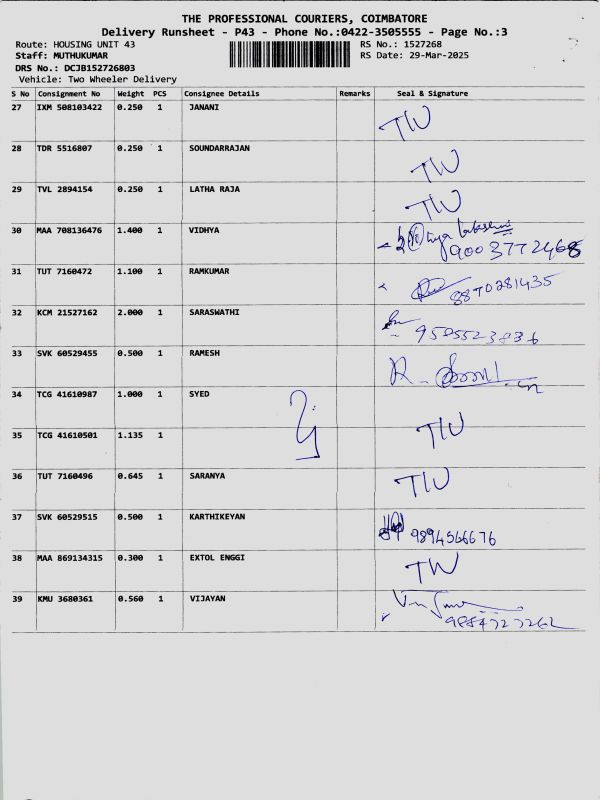 THE PROFESSIONAL COURIERS, COIMBATORE
Delivery Runsheet - P43 - Phone No.:0422-3505555 - Page No.:3
Route: HOUSING UNIT 43 RS No.: 1527268
Staff: MUTHUKUMAR RS Date: 29-Mar-2025
DRS No.: DCJB152726803
Vehicle: Two Wheeler Delivery
S No Consignment No Weight PCS Consignee Details Remarks Seal & Signature
27 IXM 508103422 0.250 1 JANANI TW
28 TDR 5516807 0.250 1 SOUNDARRAJAN TW
29 TVL 2894154 0.250 1 LATHA RAJA TW
30 MAA 708136476 1.400 1 VIDHYA
9003772468
31 TUT 7160472 1.100 1 RAMKUMAR 8870281435
32 KCM 21527162 2.000 1 SARASWATHI
9585523836
33 SVK 60529455 0.500 1 RAMESH
34 TCG 41610987 1.000 1 SYED
35 TCG 41610501 1.135 1 TW
36 TUT 7160496 0.645 1 SARANYA TW
37 SVK 60529515 0.500 1 KARTHIKEYAN 9894566676
38 MAA 869134315 0.300 1 EXTOL ENGGI TW
39 KMU 3680361 0.560 1 VIJAYAN